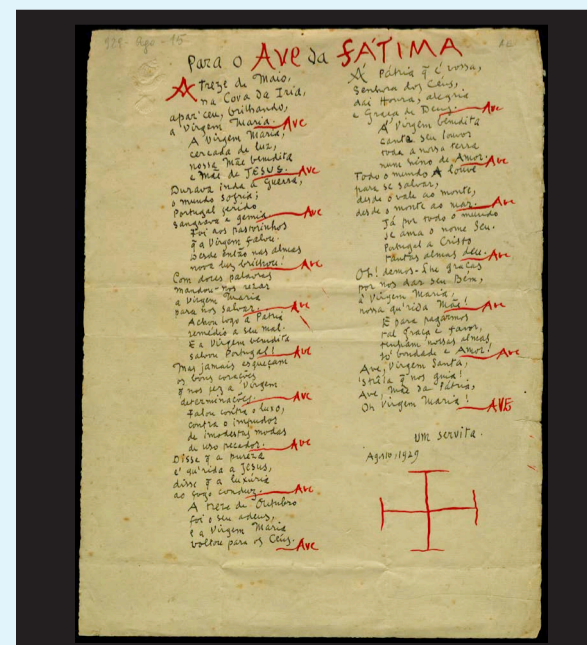 929 - Ago - 15
Para o AVE da FÁTIMA
A treze de Maio,
na Cova da Iria,
apar'ceu, brilhando,
a Virgem Maria. Ave
A Virgem Maria,
cercada de luz,
nossa Mãe bendita
e Mãe de JESUS. Ave
Durava inda a guerra,
o mundo sofria;
Portugal ferido
sangrava e gemia. Ave
Foi aos pastorinhos
q̃ a Virgem falou.
Desde então nas almas
nova luz brilhou! Ave
Com doces palavras
mandou-nos rezar
a Virgem Maria
para nos salvar. Ave
Achou logo a Pátria
remédio a seu mal.
E a Virgem bendita
salvou Portugal! Ave
Mas jamais esqueçam
os bons corações
q̃ nos fez a Virgem
determinações. Ave
Falou contra o luxo,
contra o impudor
de imodestas modas
de uso pecador. Ave
Disse q̃ a pureza
é qu'rida a Jesus,
disse q̃ a luxúria
ao fogo conduz. Ave
A treze de Outubro
foi o seu adeus,
e a Virgem Maria
voltou para os Céus. Ave
À Pátria q̃ é vossa,
Senhora dos Céus,
dai Honra, alegria
e Graça de Deus. Ave
À Virgem bendita
cante seu louvor
toda a nossa terra
num hino de Amor. Ave
Todo o mundo A louve
para se salvar,
desde o vale ao monte,
desde o monte ao mar. Ave
Já por todo o mundo
se ama o nome Seu.
Portugal a Cristo
tantas almas deu. Ave
Oh! demos-Lhe graças
por nos dar seu Bem,
à Virgem Maria,
nossa qu'rida Mãe! Ave
E para pagarmos
tal graça e favor,
tenham nossas almas
só bondade e Amor! Ave
Ave, Virgem Santa,
'Strêla q̃ nos guia!
Ave, Mãe da Pátria,
Oh Virgem Maria! AVE
Um servita.
Agosto, 1929